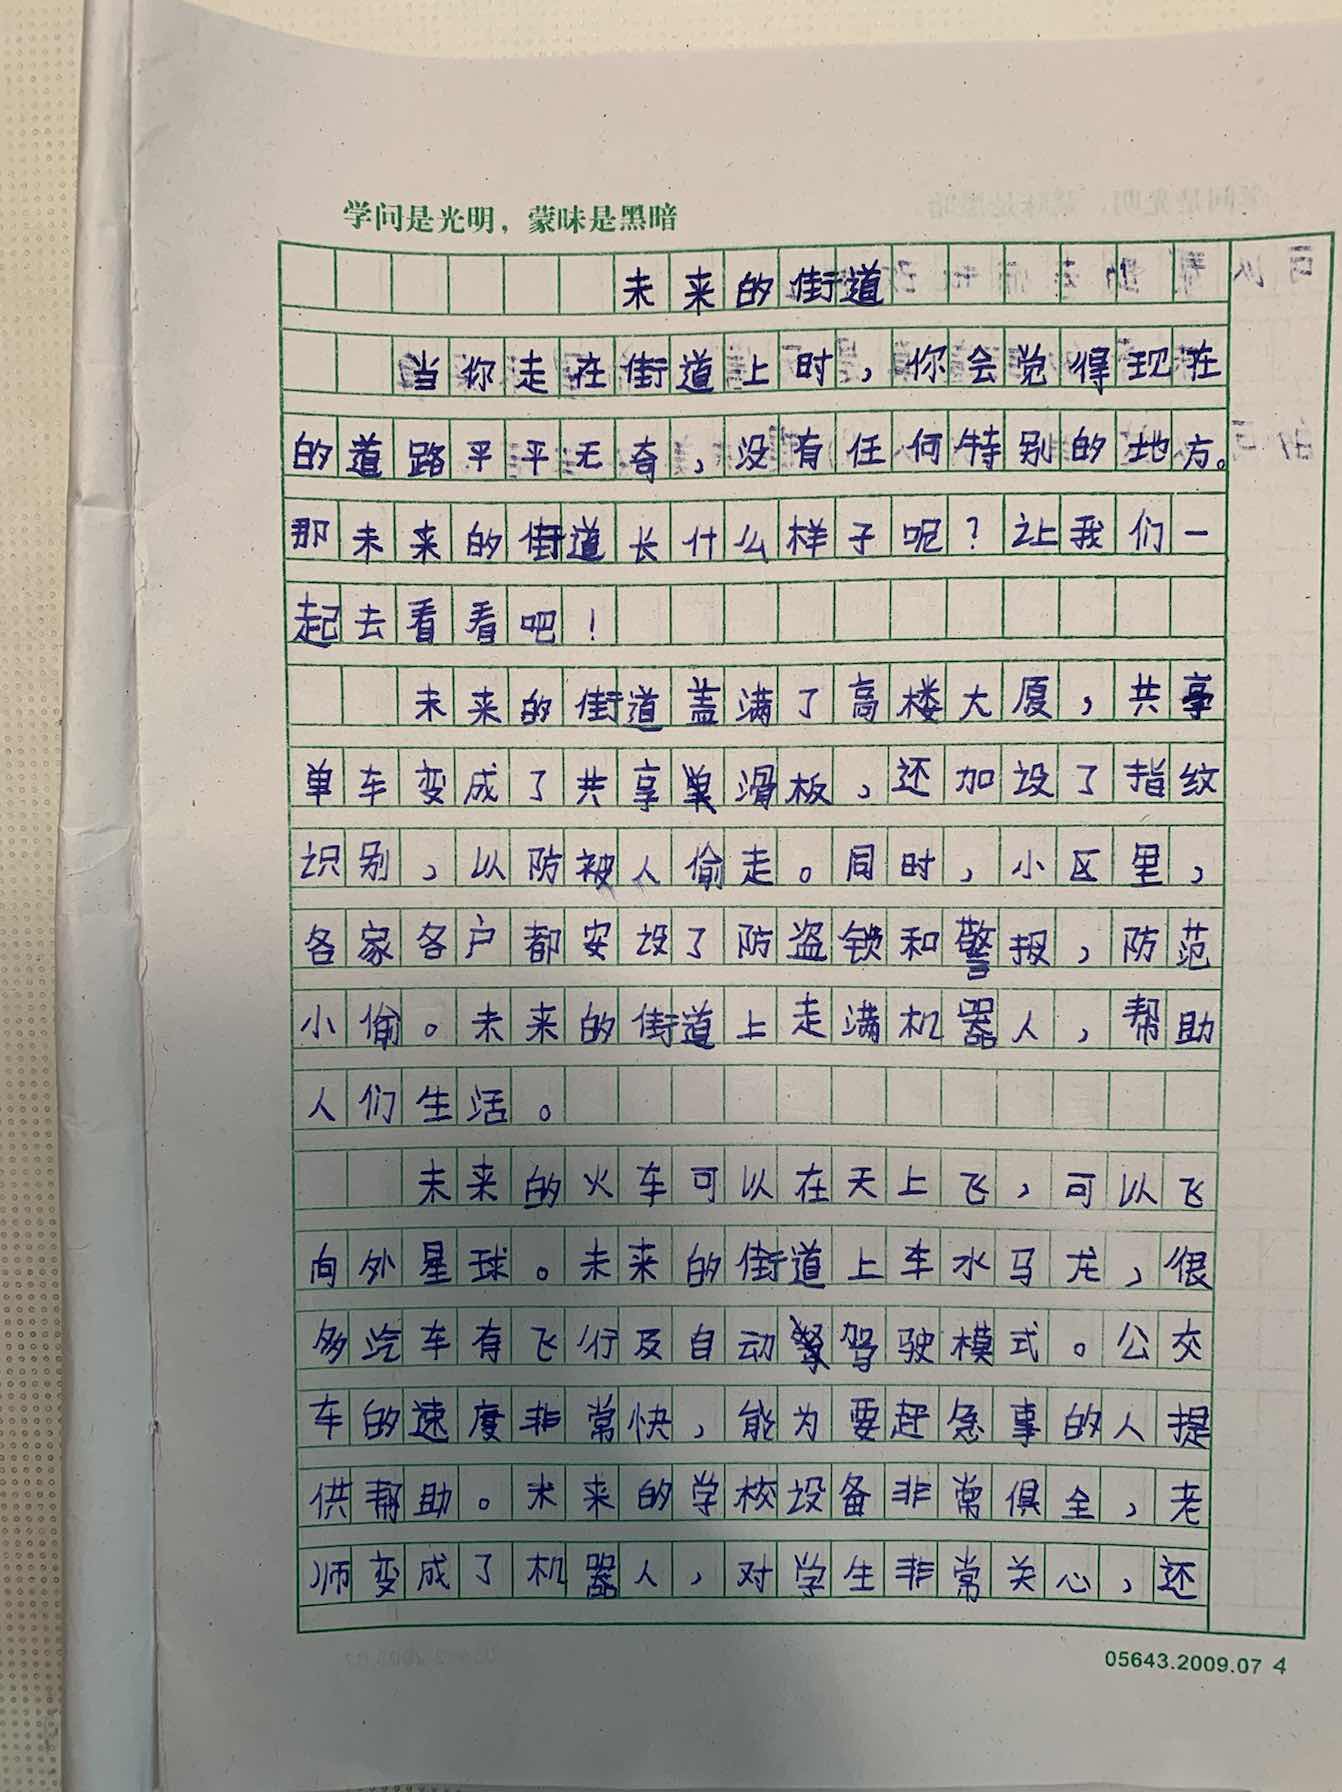 学问是光明，蒙昧是黑暗
未来的街道
当你走在街道上时，你会觉得现在
的道路平平无奇，没有任何特别的地方。
那未来的街道长什么样子呢？让我们一
起去看看吧！
未来的街道盖满了高楼大厦，共享
单车变成了共享滑板，还加设了指纹
识别，以防被人偷走。同时，小区里，
各家各户都安设了防盗锁和警报，防范
小偷。未来的街道上走满机器人，帮助
人们生活。
未来的火车可以在天上飞，可以飞
向外星球。未来的街道上车水马龙，很
多汽车有飞行及自动驾驶模式。公交
车的速度非常快，能为要赶急事的人提
供帮助。未来的学校设备非常俱全，老
师变成了机器人，对学生非常关心，还
05643.2009.07 4